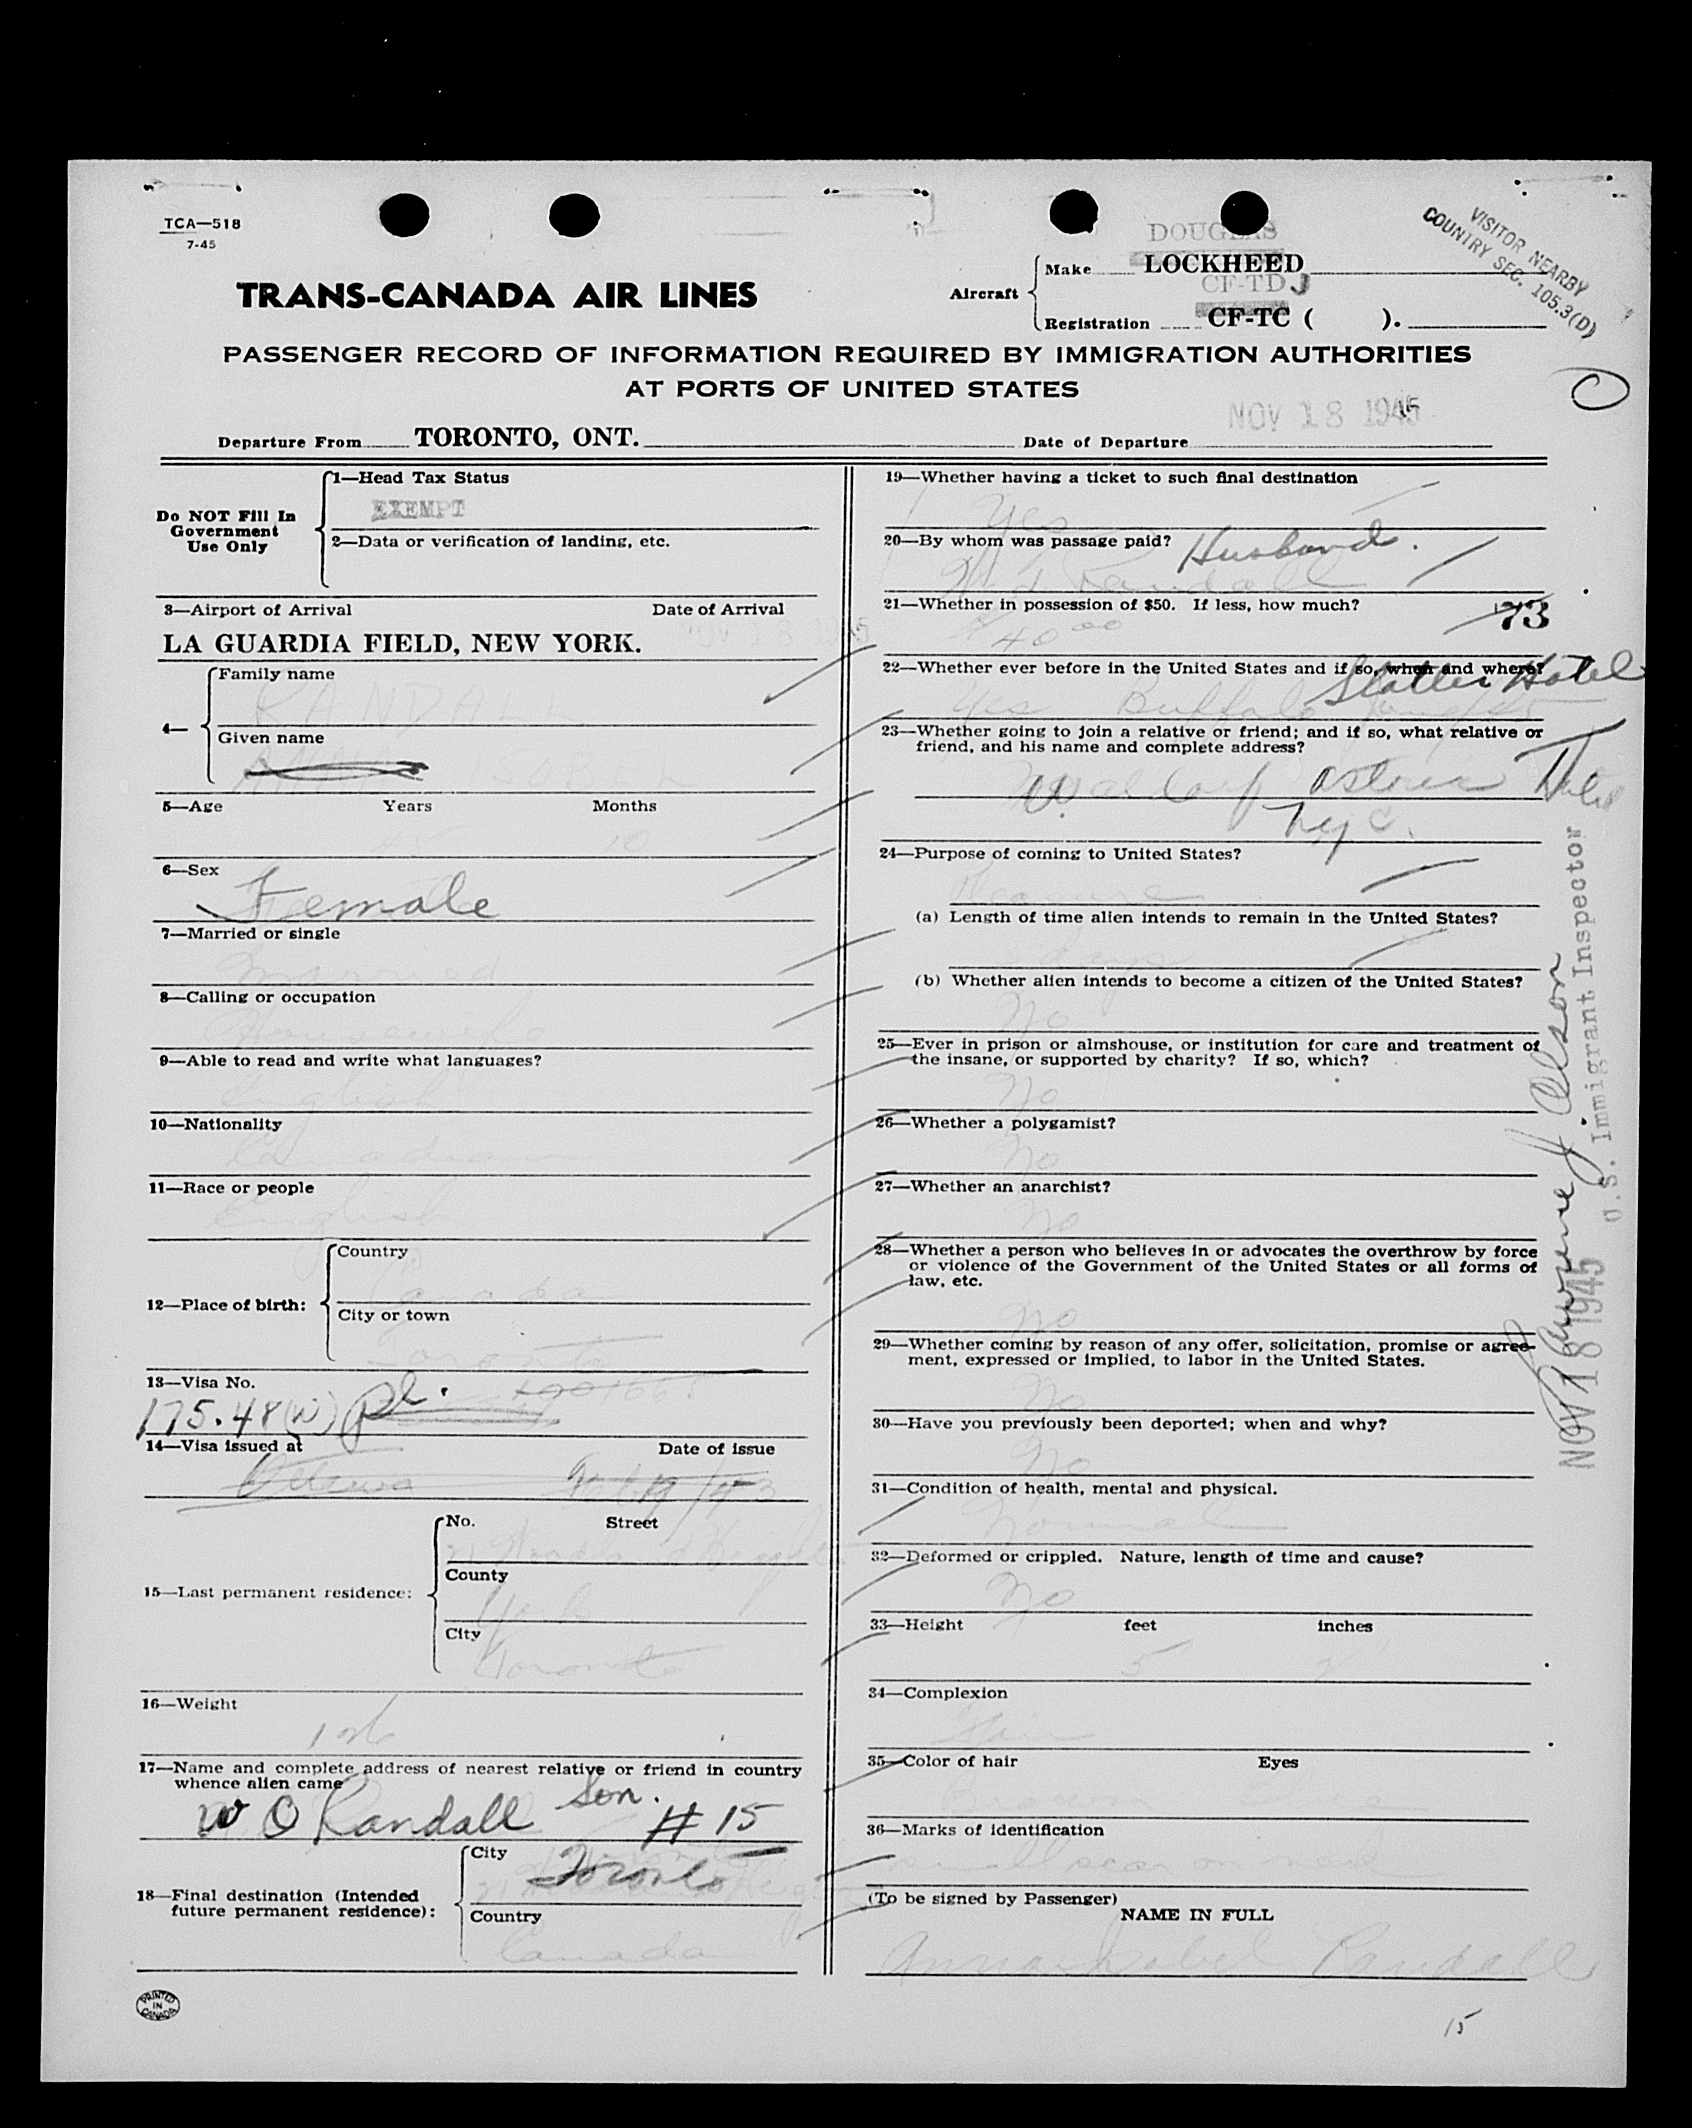 TCA—518
7-45
VISITOR NEARBY
COUNTRY SEC. 105.3(D)
TRANS-CANADA AIR LINES
DOUGLAS
Aircraft
Make LOCKHEED
CF-TDJ
Registration CF-TC ( ).
PASSENGER RECORD OF INFORMATION REQUIRED BY IMMIGRATION AUTHORITIES
AT PORTS OF UNITED STATES
NOV 18 1945
Departure From TORONTO, ONT. Date of Departure
Do NOT Fill In
Government
Use Only
1—Head Tax Status
EXEMPT
2—Data or verification of landing, etc.
3—Airport of Arrival Date of Arrival
LA GUARDIA FIELD, NEW YORK. NOV 18 1945
4—
Family name
RANDALL
Given name
ANNA ISOBEL
5—Age Years Months
10
6—Sex
Female
7—Married or single
Married
8—Calling or occupation
Housewife
9—Able to read and write what languages?
English
10—Nationality
Canadian
11—Race or people
English
12—Place of birth:
Country
Canada
City or town
Toronto
13—Visa No.
175.48(W)
14—Visa issued at Date of issue
Ottawa
15—Last permanent residence:
No. Street
County
York
City
Toronto
16—Weight
17—Name and complete address of nearest relative or friend in country
whence alien came
W O Randall Son. # 15
18—Final destination (Intended
future permanent residence):
City
Toronto
Country
Canada
PRINTED
IN
CANADA
19—Whether having a ticket to such final destination
Yes
20—By whom was passage paid? Husband.
Randall
21—Whether in possession of $50. If less, how much?
40 00
73
22—Whether ever before in the United States and if so, when and where?
Statler Hotel
Yes Buffalo
23—Whether going to join a relative or friend; and if so, what relative or
friend, and his name and complete address?
Waldorf Astoria Hotel
NYC.
24—Purpose of coming to United States?
Pleasure
(a) Length of time alien intends to remain in the United States?
days
(b) Whether alien intends to become a citizen of the United States?
No
25—Ever in prison or almshouse, or institution for care and treatment of
the insane, or supported by charity? If so, which?
No
26—Whether a polygamist?
No
27—Whether an anarchist?
No
28—Whether a person who believes in or advocates the overthrow by force
or violence of the Government of the United States or all forms of
law, etc.
No
29—Whether coming by reason of any offer, solicitation, promise or agree-
ment, expressed or implied, to labor in the United States.
No
30—Have you previously been deported; when and why?
No
31—Condition of health, mental and physical.
Normal
32—Deformed or crippled. Nature, length of time and cause?
No
33—Height feet inches
5 2
34—Complexion
35—Color of hair Eyes
Brown
36—Marks of identification
small scar on
(To be signed by Passenger)
NAME IN FULL
Anna Isobel Randall
15
U.S. Immigrant Inspector
NOV 18 1945